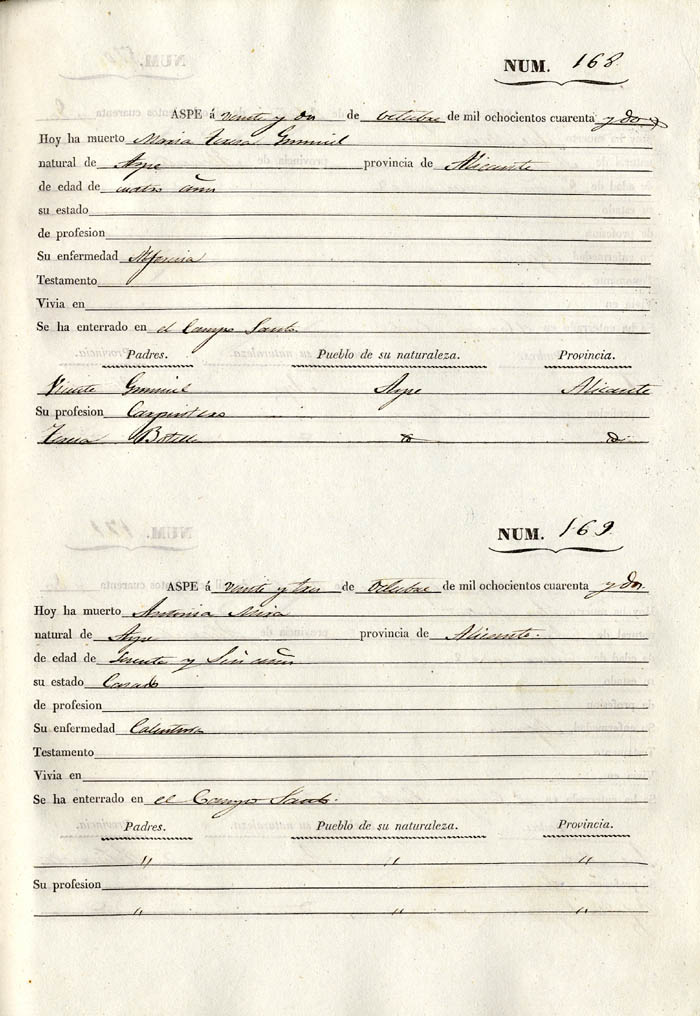 NUM. 168
ASPE á veinte y dos de Octubre de mil ochocientos cuarenta y dos
Hoy ha muerto Maria Teresa
natural de Aspe provincia de Alicante
de edad de cuatro años
su estado
de profesion
Su enfermedad
Testamento
Vivia en
Se ha enterrado en el Campo Santo
Padres. Pueblo de su naturaleza. Provincia.
Vicente Aspe Alicante
Su profesion Carpintero
Teresa Botella
NUM. 169
ASPE á veinte y tres de Octubre de mil ochocientos cuarenta y dos
Hoy ha muerto Antonia Mira
natural de Aspe provincia de Alicante.
de edad de años
su estado Casada
de profesion
Su enfermedad
Testamento
Vivia en
Se ha enterrado en el Campo Santo.
Padres. Pueblo de su naturaleza. Provincia.
" " "
Su profesion
" " "